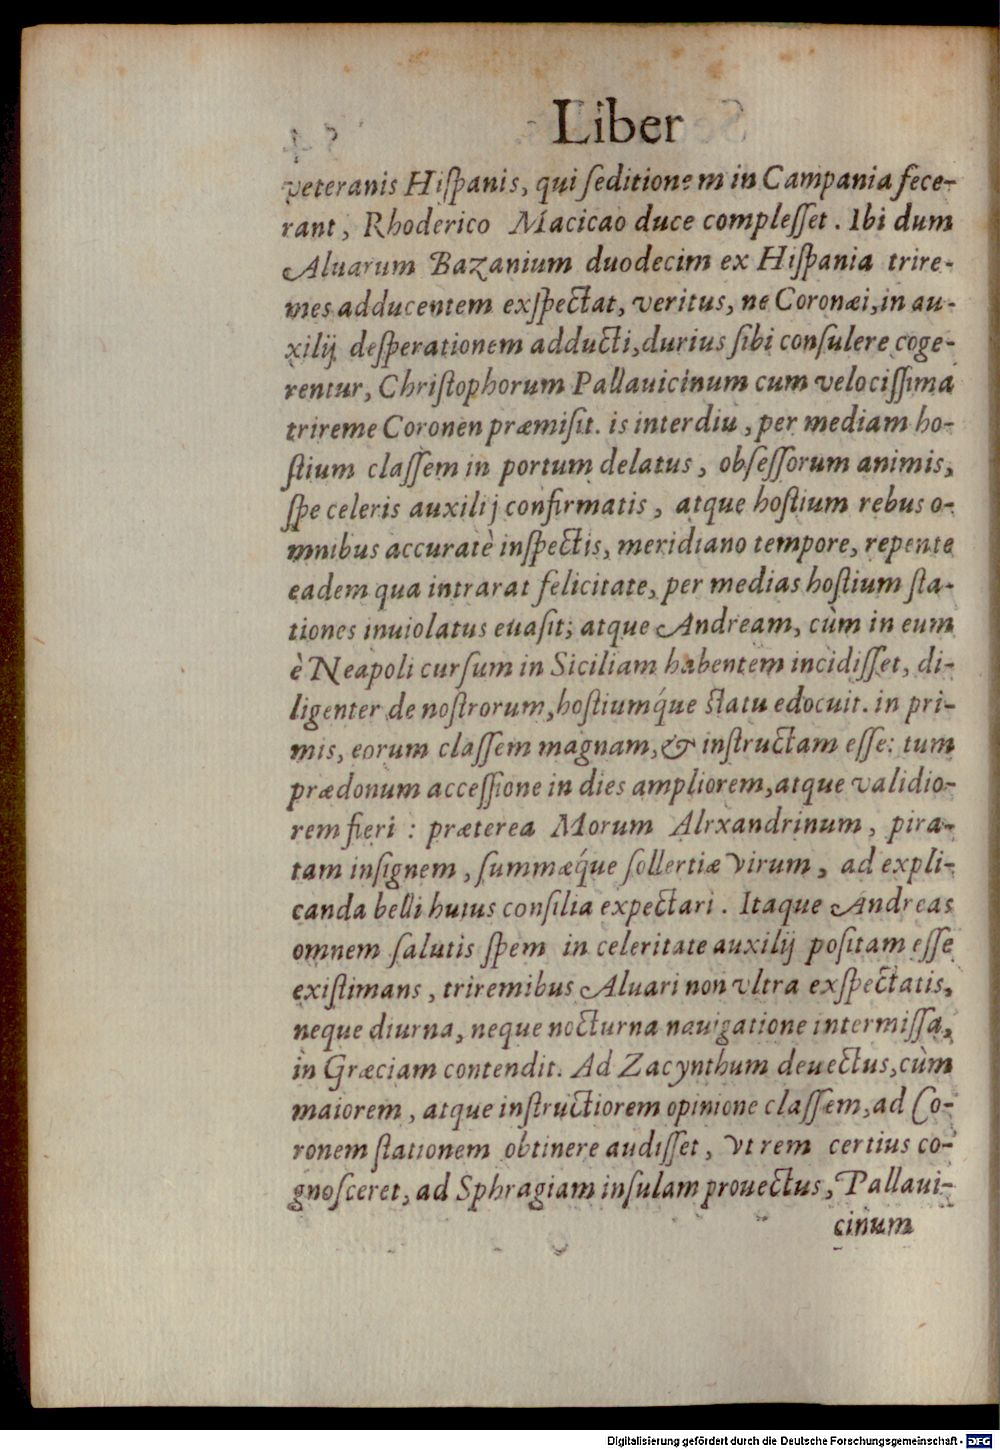 Liber
veteranis Hiſpanis, qui ſeditionem in Campania fece-
rant, Rhoderico Macicao duce compleſſet. Ibi dum
Aluarum Bazanium duodecim ex Hiſpania trire-
mes adducentem exſpectat, veritus, ne Coronæi, in au-
xilij deſperationem adducti, durius ſibi conſulere coge-
rentur, Chriſtophorum Pallauicinum cum velociſſima
trireme Coronen præmiſit. is interdiu, per mediam ho-
ſtium claſſem in portum delatus, obſeſſorum animis,
ſpe celeris auxilij confirmatis, atque hoſtium rebus o-
mnibus accuratè inſpectis, meridiano tempore, repente
eadem qua intrarat felicitate, per medias hoſtium ſta-
tiones inuiolatus euaſit; atque Andream, cùm in eum
è Neapoli curſum in Siciliam habentem incidiſſet, di-
ligenter de noſtrorum, hoſtiumq́ue ſtatu edocuit. in pri-
mis, eorum claſſem magnam, & inſtructam eſſe: tum
prædonum acceſſione in dies ampliorem, atque validio-
rem fieri: præterea Morum Alrxandrinum, pira-
tam inſignem, ſummæq́ue ſollertiæ virum, ad expli-
canda belli huius conſilia expectari. Itaque Andreas
omnem ſalutis ſpem in celeritate auxilij poſitam eſſe
exiſtimans, triremibus Aluari non vltra exſpectatis,
neque diurna, neque nocturna nauigatione intermiſſa,
in Græciam contendit. Ad Zacynthum deuectus, cùm
maiorem, atque inſtructiorem opinione claſſem, ad Co-
ronem ſtationem obtinere audiſſet, vt rem certius co-
gnoſceret, ad Sphragiam inſulam prouectus, Pallaui-
cinum
Digitalisierung gefördert durch die Deutsche Forschungsgemeinschaft - DFG